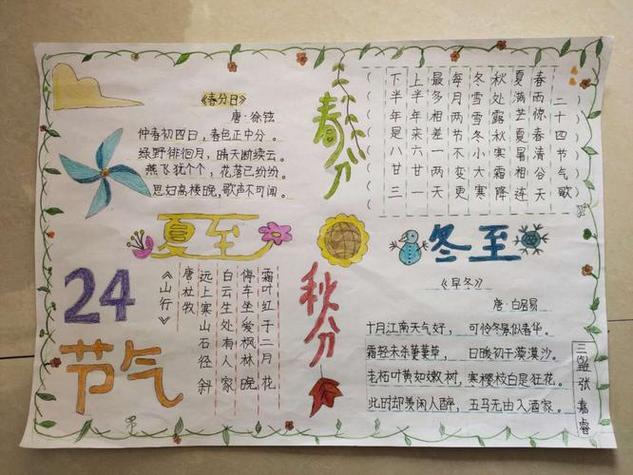 《春分日》
唐·徐铉
仲春初四日，春色正中分。
绿野徘徊月，晴天断续云。
燕飞犹个个，花落已纷纷。
思妇高楼晚，歌声不可闻。
春分
二十四节气歌
春雨惊春清谷天
夏满芒夏暑相连
秋处露秋寒霜降
冬雪雪冬小大寒
每月两节不变更
最多相差一两天
上半年来六廿一
下半年是八廿三
夏至
24
节气
《山行》
唐杜牧
远上寒山石径斜
白云生处有人家
停车坐爱枫林晚
霜叶红于二月花
秋分
冬至
《早冬》
唐·白居易
十月江南天气好，可怜冬景似春华。
霜轻未杀萋萋草，日暖初干漠漠沙。
老柘叶黄如嫩树，寒樱枝白是狂花。
此时却羡闲人醉，五马无由入酒家。
张嘉睿